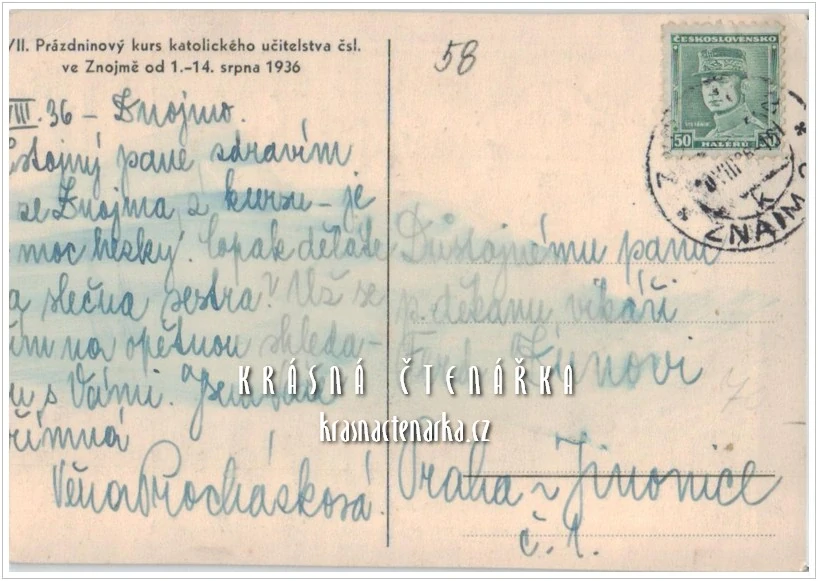 VII. Prázdninový kurs katolického učitelstva čsl.
ve Znojmě od 1.–14. srpna 1936
58
ČESKOSLOVENSKO
50 HALÉŘŮ 50
VIII. 36 – Znojmo.
pane zdravím
se Znojma z kursu – je
moc hezky. Copak děláte
a slečna sestra? Už se
na opětnou shleda-
s Vámi.
Věna Procházková.
Důstojnému panu
p. děkanu vikáři
Ferd.
Praha – Jinonice
č. 1.
ZNAIM
KRÁSNÁ ČTENÁŘKA
krasnactenarka.cz